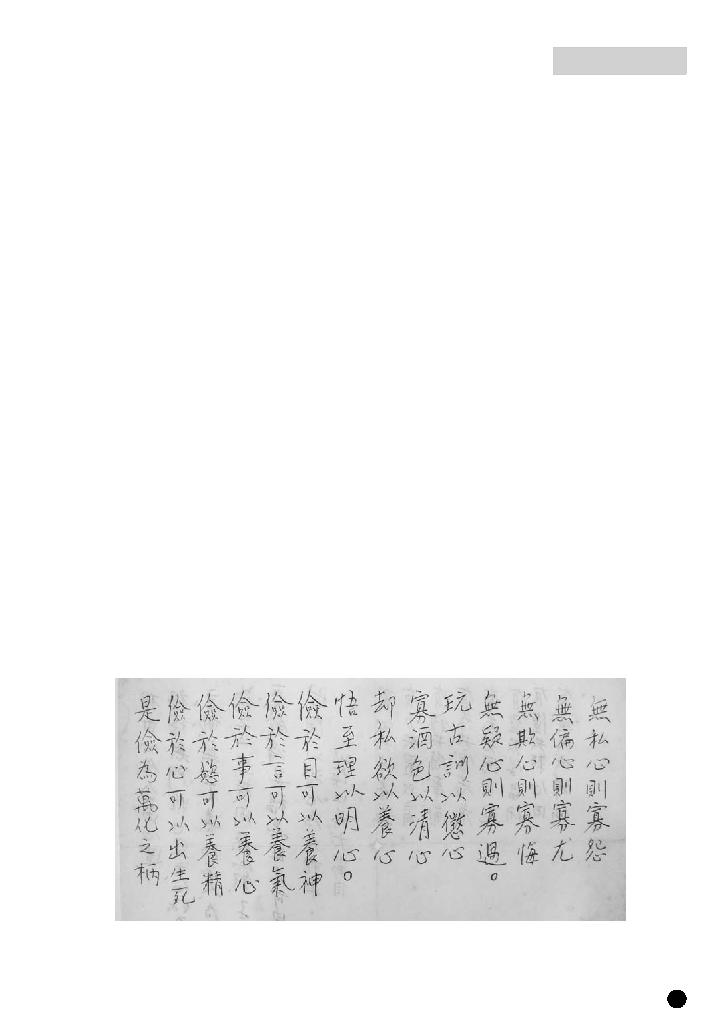 無私心則寡怨
無偏心則寡尤
無欺心則寡悔
無疑心則寡過。
玩古訓以懲心
寡酒色以清心
却私欲以養心
悟至理以明心。
儉於目可以養神
儉於言可以養氣
儉於事可以養心
儉於慾可以養精
儉於心可以出生死
是儉為萬化之柄